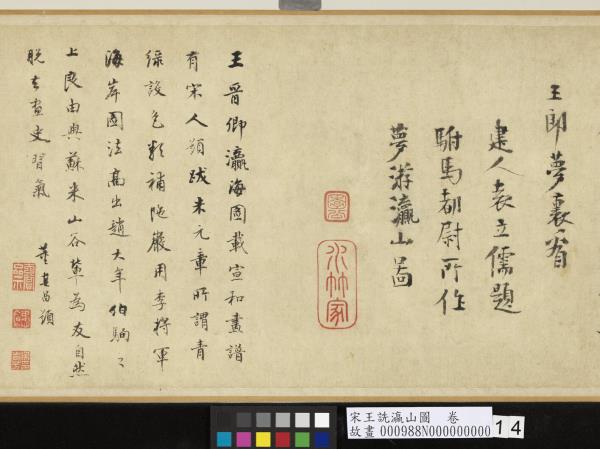 王郎夢裏省
建人袁立儒題
駙馬都尉所作
夢游瀛山圖
水竹家
王晉卿瀛海圖載宣和畫譜
有宋人題跋米元章所謂青
綠設色類補陀巖用李將軍
海岸圖法高出趙大年伯駒之
上良由與蘇米山谷輩為友自然
脫去畫史習氣
董其昌題
宋王詵瀛山圖 卷
故畫 000988N000000000
14